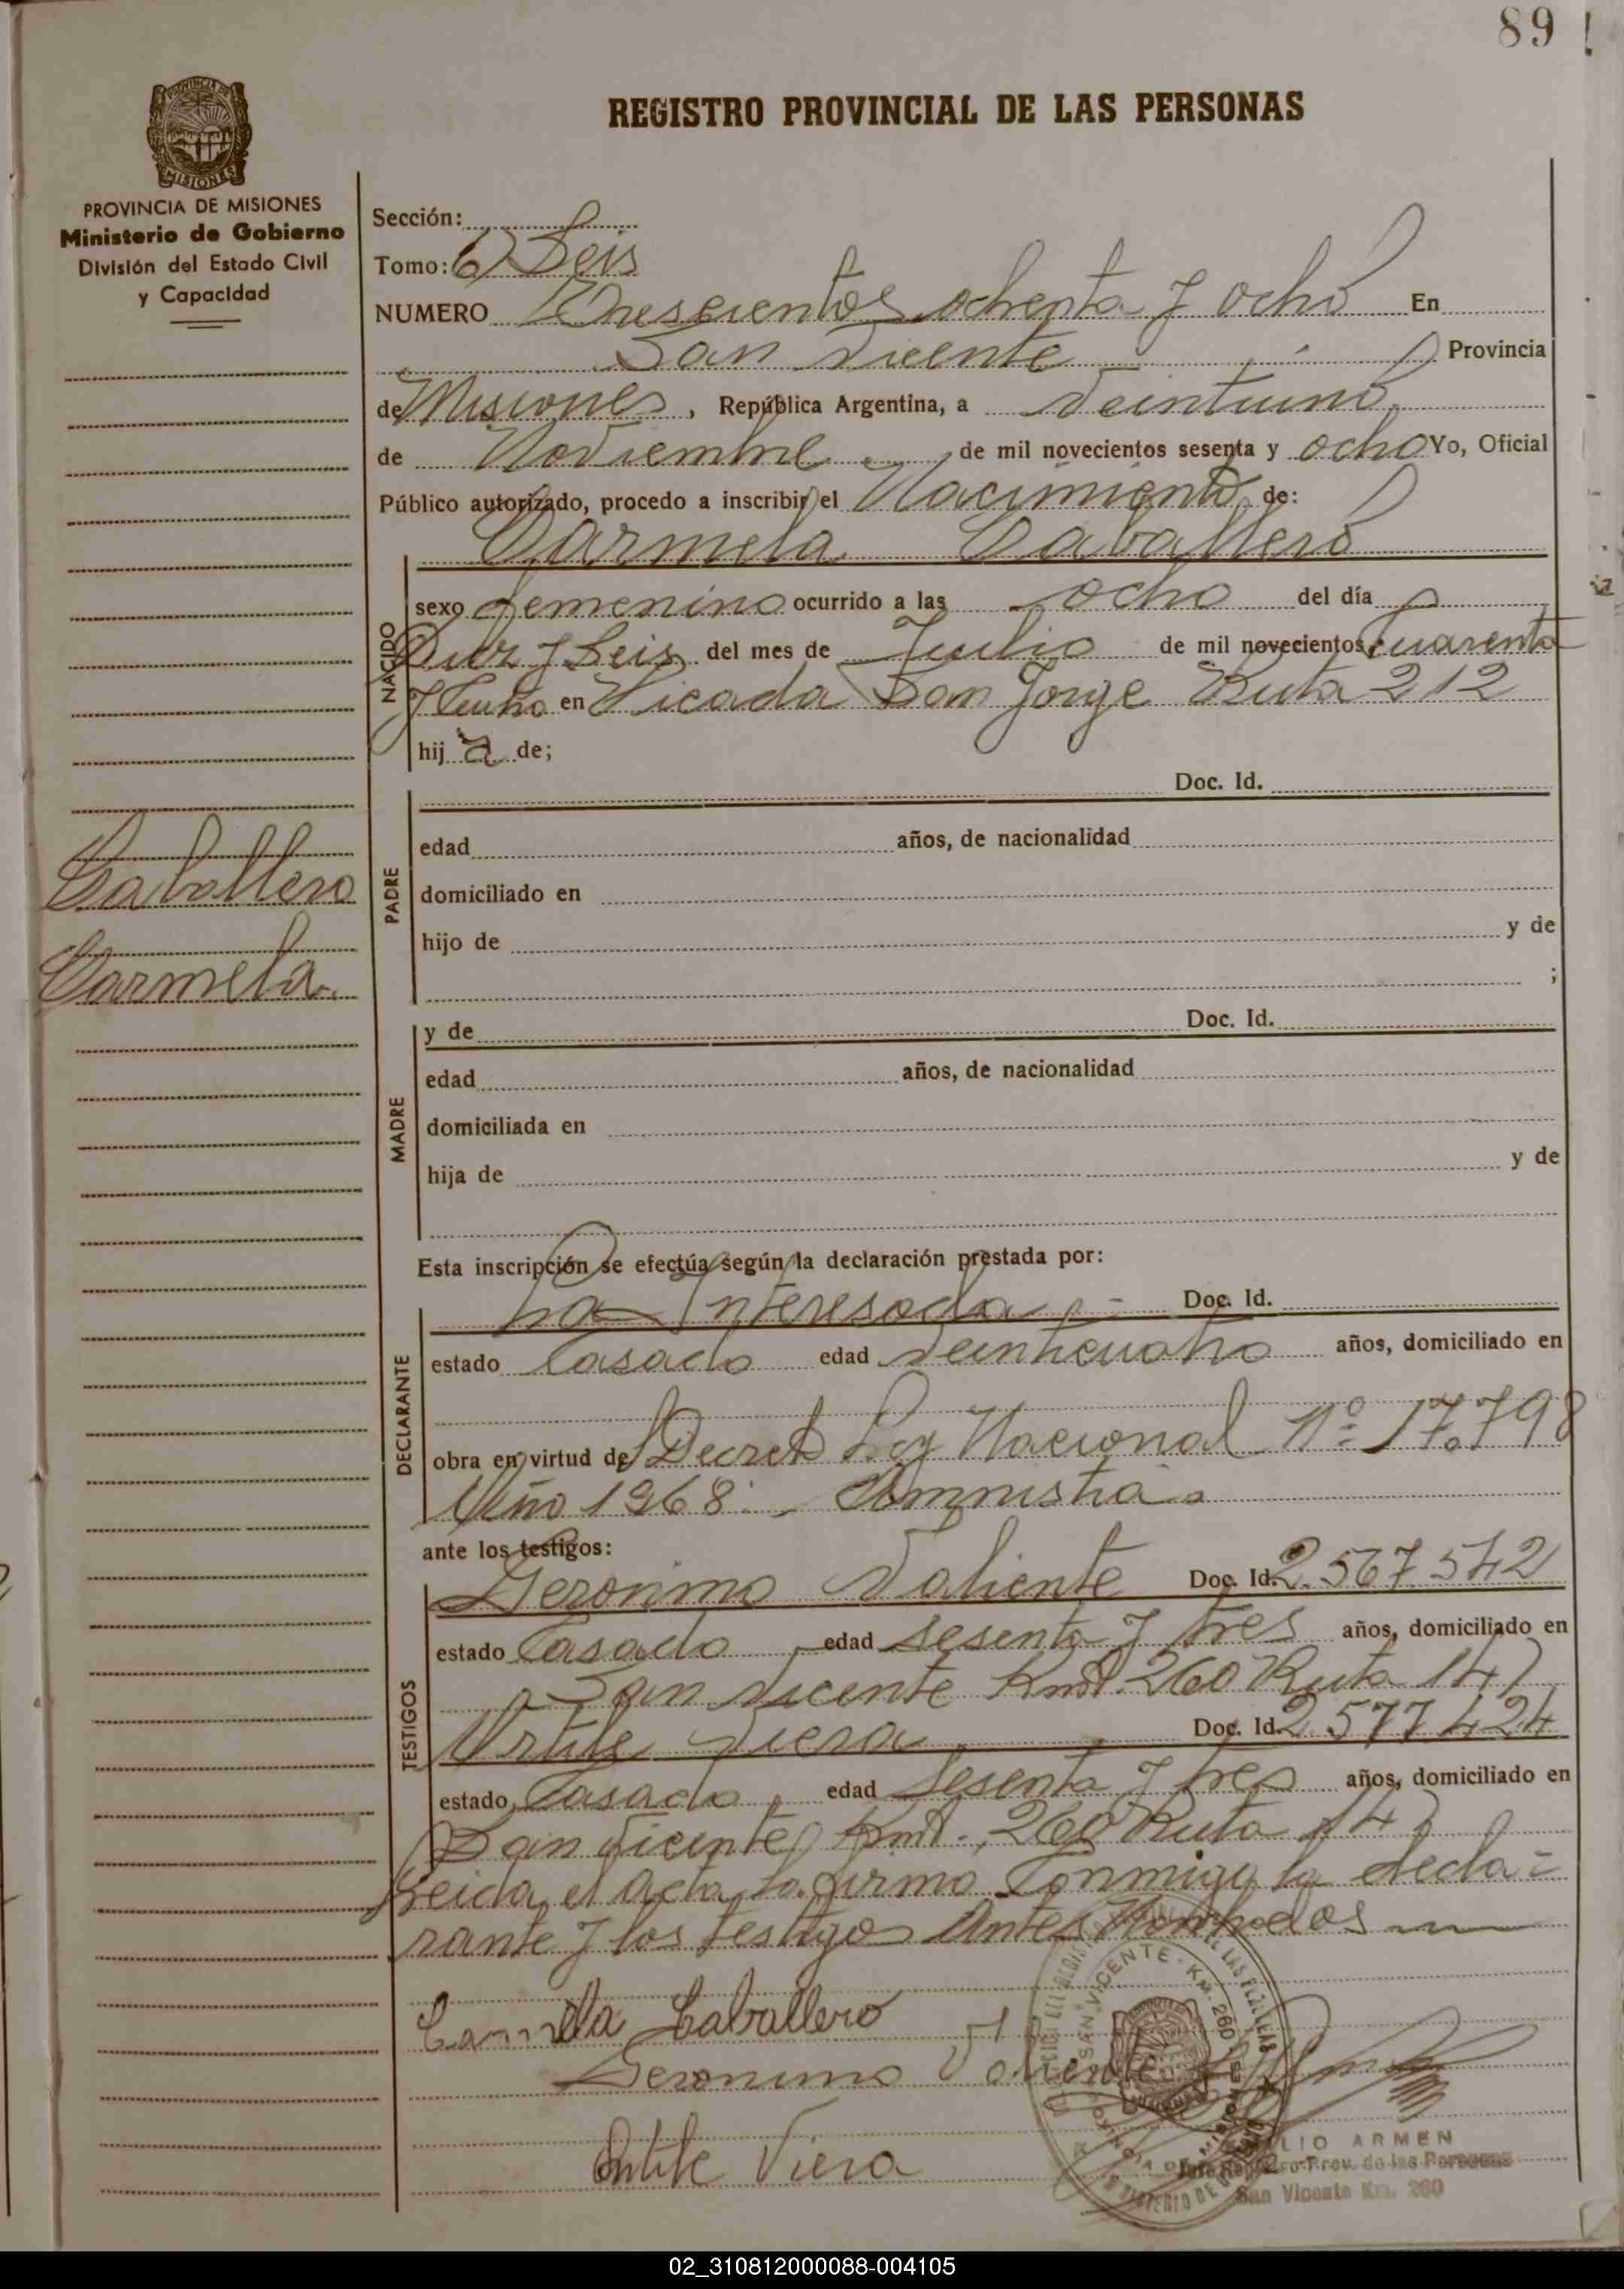 89
REGISTRO PROVINCIAL DE LAS PERSONAS
PROVINCIA DE MISIONES
MISIONES
PROVINCIA DE MISIONES
Ministerio de Gobierno
División del Estado Civil
y Capacidad
Sección:
Tomo: 6) Seis
NUMERO Trescientos ochenta y ocho En
San Vicente Provincia
de Misiones, República Argentina, a Veintiuno
de Noviembre de mil novecientos sesenta y ocho Yo, Oficial
Público autorizado, procedo a inscribir el Nacimiento de:
Carmela Caballero
NACIDO
sexo femenino ocurrido a las ocho del día
Diez y Seis del mes de Julio de mil novecientos Cuarenta
y Cuatro en Picada San Jorge Ruta 212
hij a de;
PADRE
Doc. Id.
edad años, de nacionalidad
domiciliado en
hijo de y de
;
Caballero
Carmela.
MADRE
y de Doc. Id.
edad años, de nacionalidad
domiciliada en
hija de y de
Esta inscripción se efectúa según la declaración prestada por:
DECLARANTE
La Interesada Doc. Id.
estado Casada edad Veinticuatro años, domiciliado en
obra en virtud de Decreto Ley Nacional Nº 17.798
Año 1968. Amnistia.
ante los testigos:
TESTIGOS
Geronimo Valiente Doc. Id. 2.567.542
estado Casado edad Sesenta y tres años, domiciliado en
San Vicente Kmt. 260 Ruta 14)
Viera Doc. Id. 2.577.424
estado Casado edad Sesenta y tres años, domiciliado en
San Vicente Kmt. 260 Ruta 14)
Leida el Acta, la firma Conmigo la decla=
rante y los testigos Antes Nombrados
Carmela Caballero
Geronimo Valiente
Viera
SAN VICENTE - KM. 260
LIO ARMEN
Jefe Registro Prov. de las Personas
San Vicente Km. 260
02_310812000088-004105